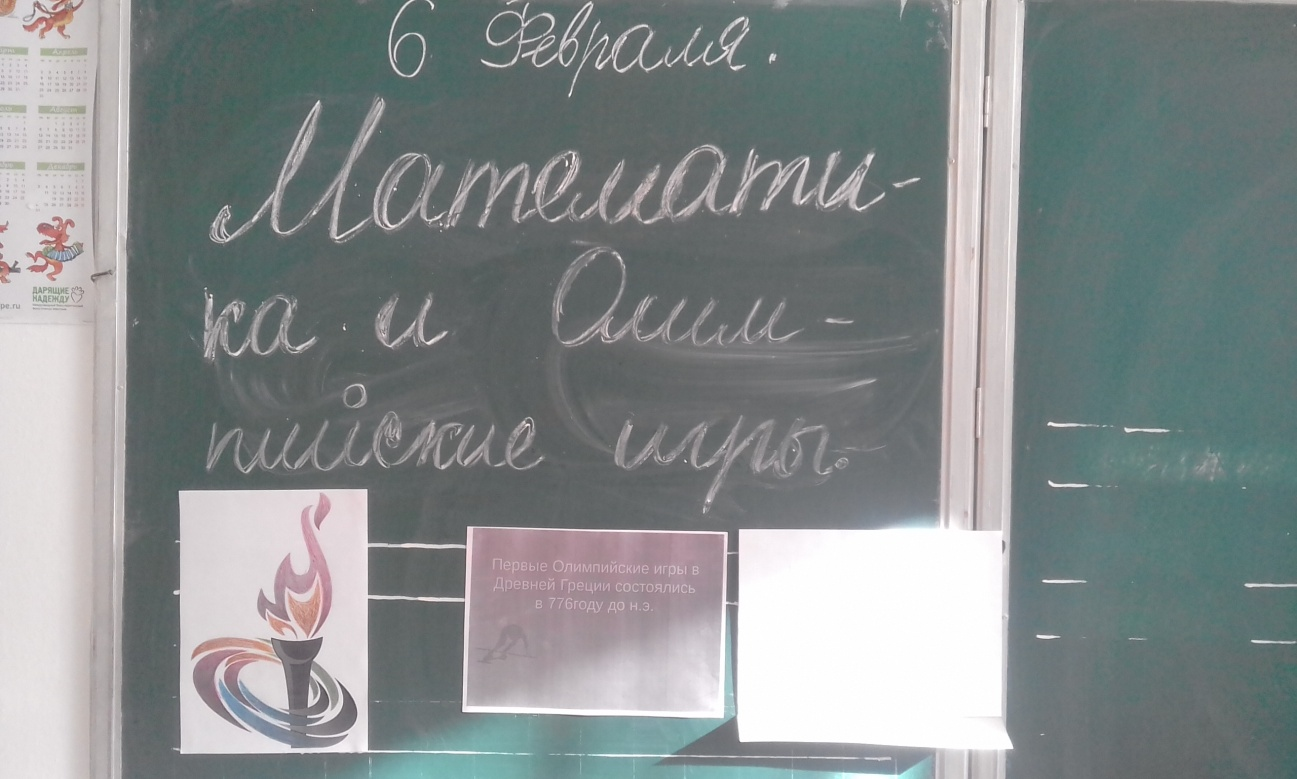 6 Февраля.
Математи-
ка и Олим-
пийские игры.
Первые Олимпийские игры в
Древней Греции состоялись
в 776году до н.э.
ДАРЯЩИЕ
НАДЕЖДУ
pe.ru